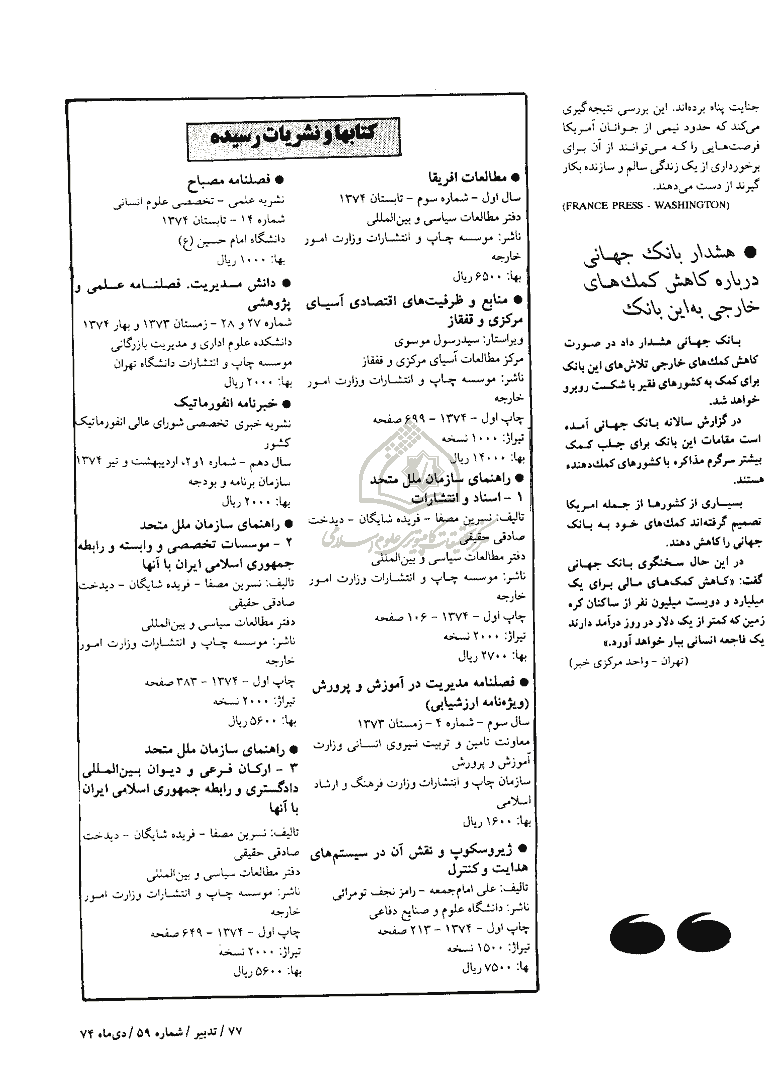 جنایت پناه برده‌اند. این بررسی نتیجه‌گیری
می‌کند که حدود نیمی از جوانان آمریکا
فرصت‌هایی را که می‌توانند از آن برای
برخورداری از یک زندگی سالم و سازنده بکار
گیرند از دست می‌دهند.
(FRANCE PRESS - WASHINGTON)
● هشدار بانک جهانی
درباره کاهش کمک‌های
خارجی به‌این بانک
بانک جهانی هشدار داد در صورت
کاهش کمک‌های خارجی تلاش‌های این بانک
برای کمک به کشورهای فقیر با شکست روبرو
خواهد شد.
در گزارش سالانه بانک جهانی آمده
است مقامات این بانک برای جلب کمک
بیشتر سرگرم مذاکره با کشورهای کمک‌دهنده
هستند.
بسیاری از کشورها از جمله امریکا
تصمیم گرفته‌اند کمک‌های خود به بانک
جهانی را کاهش دهند.
در این حال سخنگوی بانک جهانی
گفت: «کاهش کمک‌های مالی برای یک
میلیارد و دویست میلیون نفر از ساکنان کره
زمین که کمتر از یک دلار در روز درآمد دارند
یک فاجعه انسانی ببار خواهد آورد.»
(تهران - واحد مرکزی خبر)
کتابها و نشریات رسیده
● مطالعات افریقا
سال اول - شماره سوم - تابستان ۱۳۷۴
دفتر مطالعات سیاسی و بین‌المللی
ناشر: موسسه چاپ و انتشارات وزارت امور
خارجه
بها: ۶۵۰۰ ریال
● منابع و ظرفیت‌های اقتصادی آسیای
مرکزی و قفقاز
ویراستار: سیدرسول موسوی
مرکز مطالعات آسیای مرکزی و قفقاز
ناشر: موسسه چاپ و انتشارات وزارت امور
خارجه
چاپ اول - ۱۳۷۴ - ۶۹۹ صفحه
تیراژ: ۱۰۰۰ نسخه
بها: ۱۴۰۰۰ ریال
● راهنمای سازمان ملل متحد
۱ - اسناد و انتشارات
تالیف: نسرین مصفا - فریده شایگان - دیدخت
صادقی حقیقی
دفتر مطالعات سیاسی و بین‌المللی
ناشر: موسسه چاپ و انتشارات وزارت امور
خارجه
چاپ اول - ۱۳۷۴ - ۱۰۶ صفحه
تیراژ: ۲۰۰۰ نسخه
بها: ۲۷۰۰ ریال
● فصلنامه مدیریت در آموزش و پرورش
(ویژه‌نامه ارزشیابی)
سال سوم - شماره ۴ - زمستان ۱۳۷۳
معاونت تامین و تربیت نیروی انسانی وزارت
آموزش و پرورش
سازمان چاپ و انتشارات وزارت فرهنگ و ارشاد
اسلامی
بها: ۱۶۰۰ ریال
● ژیروسکوپ و نقش آن در سیستم‌های
هدایت و کنترل
تالیف: علی امام‌جمعه - رامز نجف تومرائی
ناشر: دانشگاه علوم و صنایع دفاعی
چاپ اول - ۱۳۷۴ - ۲۱۳ صفحه
تیراژ: ۱۵۰۰ نسخه
بها: ۷۵۰۰ ریال
● فصلنامه مصباح
نشریه علمی - تخصصی علوم انسانی
شماره ۱۴ - تابستان ۱۳۷۴
دانشگاه امام حسین (ع)
بها: ۱۰۰۰ ریال
● دانش مدیریت. فصلنامه علمی و
پژوهشی
شماره ۲۷ و ۲۸ - زمستان ۱۳۷۳ و بهار ۱۳۷۴
دانشکده علوم اداری و مدیریت بازرگانی
موسسه چاپ و انتشارات دانشگاه تهران
بها: ۲۰۰۰ ریال
● خبرنامه انفورماتیک
نشریه خبری تخصصی شورای عالی انفورماتیک
کشور
سال دهم - شماره ۱و۲، اردیبهشت و تیر ۱۳۷۴
سازمان برنامه و بودجه
بها: ۲۰۰۰ ریال
● راهنمای سازمان ملل متحد
۲ - موسسات تخصصی و وابسته و رابطه
جمهوری اسلامی ایران با آنها
تالیف: نسرین مصفا - فریده شایگان - دیدخت
صادقی حقیقی
دفتر مطالعات سیاسی و بین‌المللی
ناشر: موسسه چاپ و انتشارات وزارت امور
خارجه
چاپ اول - ۱۳۷۴ - ۳۸۳ صفحه
تیراژ: ۲۰۰۰ نسخه
بها: ۵۶۰۰ ریال
● راهنمای سازمان ملل متحد
۳ - ارکان فرعی و دیوان بین‌المللی
دادگستری و رابطه جمهوری اسلامی ایران
با آنها
تالیف: نسرین مصفا - فریده شایگان - دیدخت
صادقی حقیقی
دفتر مطالعات سیاسی و بین‌المللی
ناشر: موسسه چاپ و انتشارات وزارت امور
خارجه
چاپ اول - ۱۳۷۴ - ۶۴۹ صفحه
تیراژ: ۲۰۰۰ نسخه
بها: ۵۶۰۰ ریال
۷۷ / تدبیر / شماره ۵۹ / دی‌ماه ۷۴